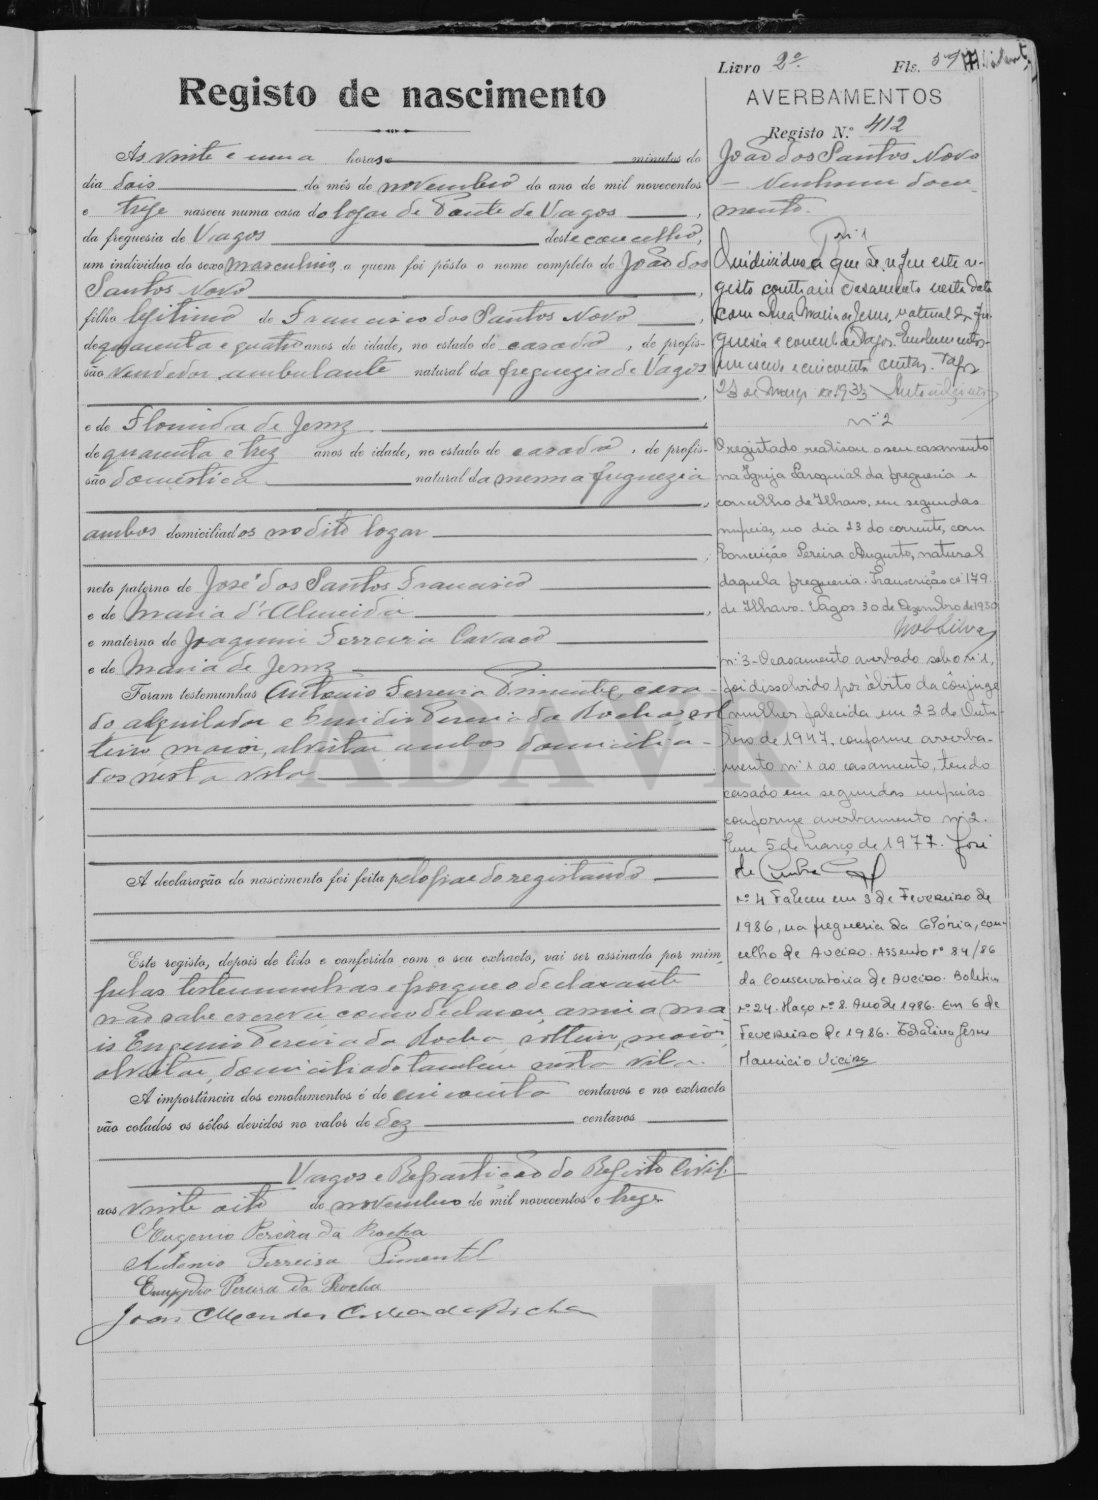 Livro 2º Fls. 57
Registo de nascimento
Ás vinte e uma horas minutos do
dia dois do mês de novembro do ano de mil novecentos
e treze nasceu numa casa do logar de Ponte de Vagos,
da freguesia de Vagos deste concelho,
um individuo do sexo masculino, a quem foi pôsto o nome completo de João dos
Santos Novo,
filho legitimo de Francisco dos Santos Novo,
de quarenta e quatro anos de idade, no estado de casado, de profis-
são vendedor ambulante natural da freguezia de Vagos,
e de Florinda de Jesuz
de quarenta e trez anos de idade, no estado de casada, de profis-
são domestica natural da mesma freguezia
,
ambos domiciliados no dito logar
;
neto paterno de José dos Santos Francisco
e de Maria d'Almeida,
e materno de Joaquim Ferreira Cavaco
e de Maria de Jesuz
Foram testemunhas Antonio Ferreira Pimentel, casa-
do alquilador e Emidio Pereira da Rocha, sol
teiro maior, alveitar ambos domicilia-
dos nesta vila
A declaração do nascimento foi feita pelo pae do registando
Este registo, depois de lido e conferido com o seu extracto, vai ser assinado por mim,
pelas testemunhas e porque o declarante
não sabe escrever como declarou, assina ma
is Eugenio Pereira da Rocha, solteiro, maior,
alveitar, domiciliado tambem nesta vila.
A importância dos emolumentos é de cincoenta centavos e no extracto
vão colados os sêlos devidos no valor de dez centavos
Vagos e Repartição do Registo Civil
aos vinte oito de novembro de mil novecentos e treze
Eugenio Pereira da Rocha
Antonio Ferreira Pimentel
Emygdio Pereira da Rocha
João Mendes Correia da Rocha
AVERBAMENTOS
Registo N.º 412
João dos Santos Novo
— Nenhum docu-
mento.
Nº 1
O individuo a que se refere este re-
gisto contraiu casamento nesta data
com Rosa Maria de Jesus, natural da fre-
guesia e concelho de Vagos. Emolumentos-
um escudo e cincoenta centav. Vagos
23 de Março de 1933
nº 2
O registado realisou o seu casamento
na Igreja Paroquial da freguesia e
concelho de Ilhavo, em segundas
nupcias, no dia 23 do corrente, com
Conceição Pereira Augusto, natural
daquela freguesia. Transcrição nº 179
de Ilhavo. Vagos 30 de Dezembro de 1950
nº 3 - O casamento averbado sob o nº 1,
foi dissolvido por óbito da cônjuge
mulher falecida em 23 de Outu-
bro de 1947, conforme averba-
mento nº 1 ao casamento, tendo
casado em segundas nupcias
conforme averbamento nº 2.
Em 5 de Março de 1977. José
da Cunha
Nº 4 Faleceu em 3 de Fevereiro de
1986, na freguesia da Glória, con-
celho de Aveiro. Assento nº 84/86
da Conservatória de Aveiro. Boletim
nº 24. Maço nº 8. Ano de 1986. Em 6 de
Fevereiro de 1986. Edalina Jesus
Mauricio Vieira
ADAVR